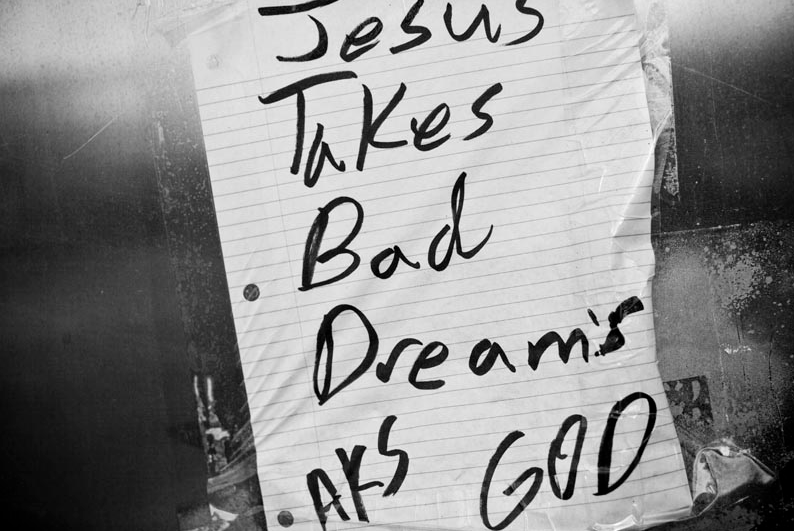 Jesus
Takes
Bad
Dream's
AKS GOD